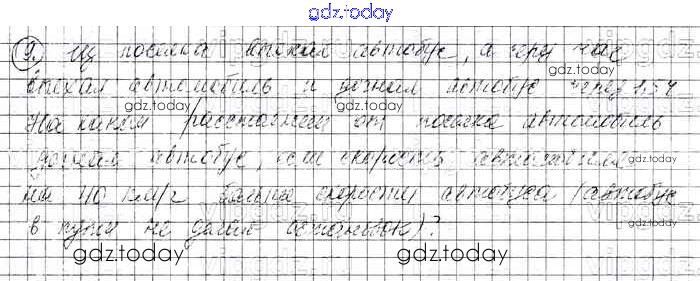 gdz.today
9. Из поселка выехал автобус, а через час
выехал автомобиль и догнал автобус через 1,5 ч
gdz.today gdz.today
На каком расстоянии от поселка автомобиль
догнал автобус, если скорость автомобиля
gdz.today gdz.today
на 40 км/ч больше скорости автобуса (автобус
в пути не делал остановок)?
gdz.today gdz.today